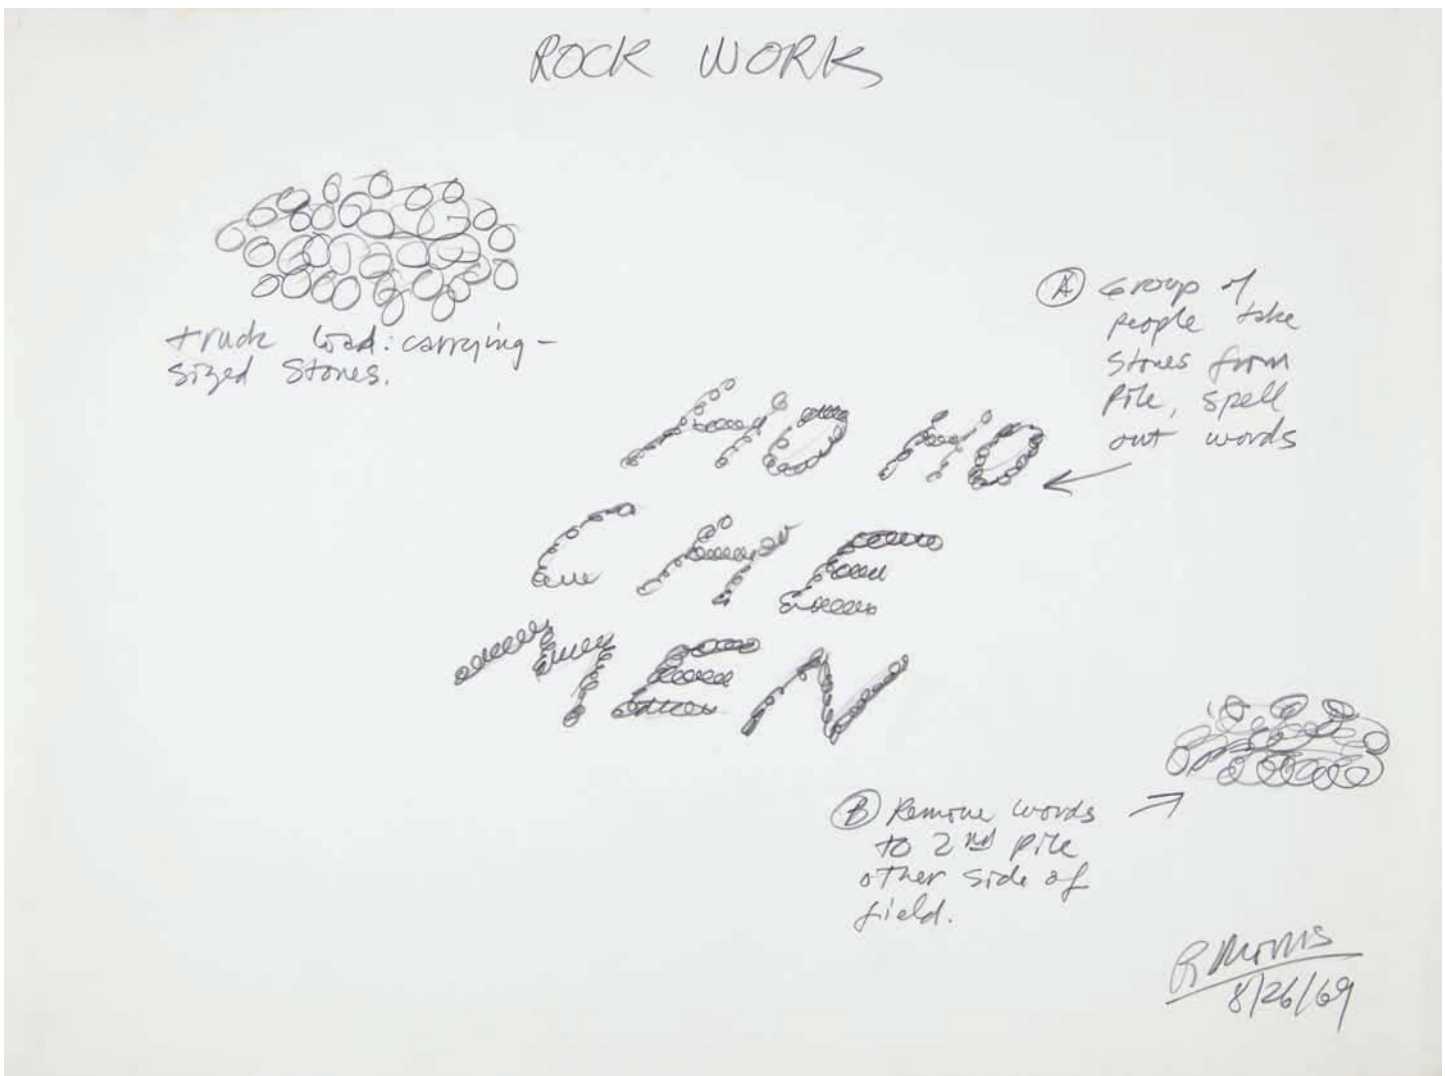 ROCK WORK
truck load: carrying-
sized stones.
Ⓐ Group of
people take
stones from
pile, spell
out words
HO HO
CHE
MEN
Ⓑ Remove words
to 2nd pile
other side of
field.
R Morris
8/26/69